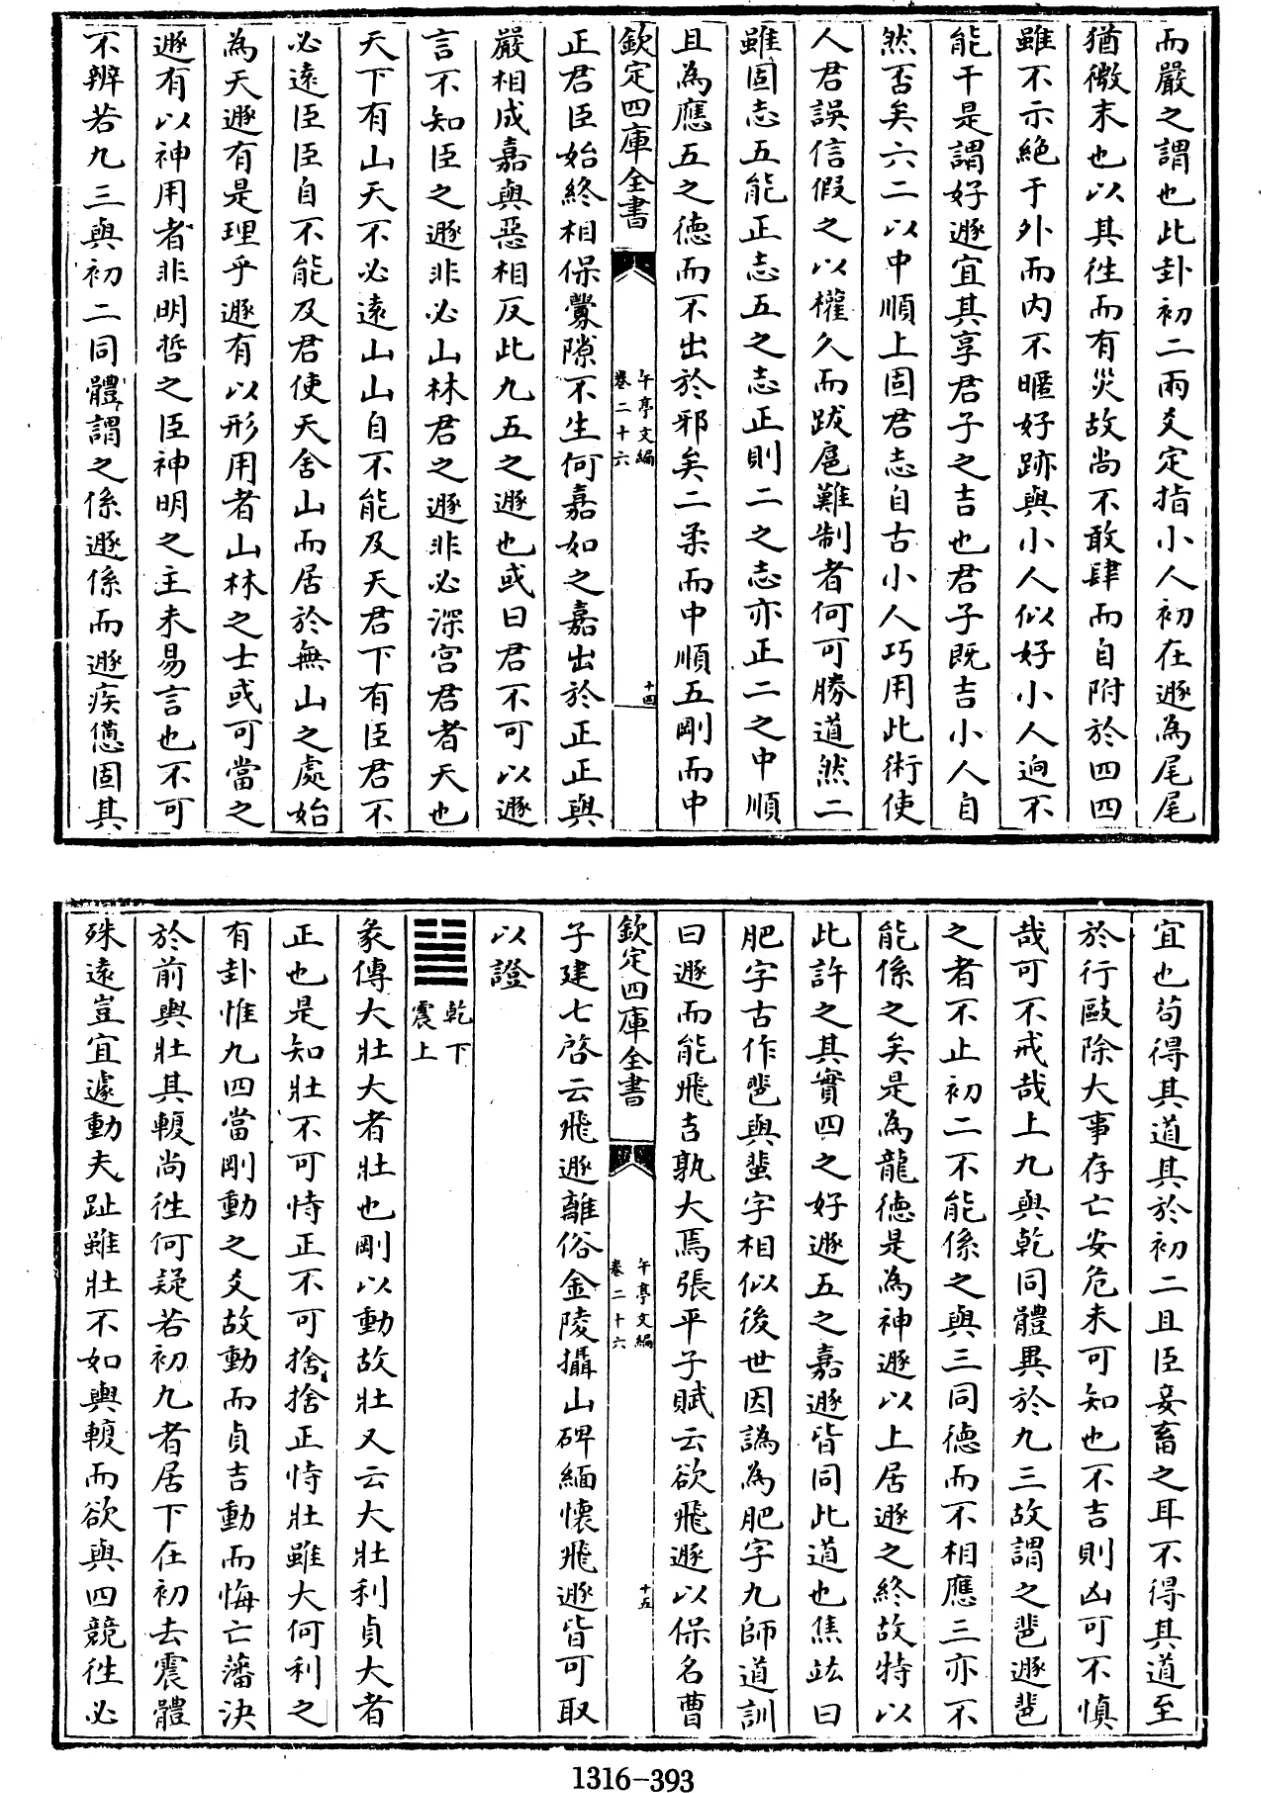 而嚴之謂也此卦初二兩爻定指小人初在遯為尾尾
猶微末也以其徃而有災故尚不敢肆而自附於四四
雖不示絶于外而内不暱好跡與小人似好小人逈不
能干是謂好遯宜其享君子之吉也君子既吉小人自
然否矣六二以中順上固君志自古小人巧用此術使
人君誤信假之以權久而跋扈難制者何可勝道然二
雖固志五能正志五之志正則二之志亦正二之中順
且為應五之德而不出於邪矣二柔而中順五剛而中
欽定四庫全書
午亭文編
卷二十六
十四
正君臣始終相保釁隙不生何嘉如之嘉出於正正與
嚴相成嘉與惡相反此九五之遯也或曰君不可以遯
言不知臣之遯非必山林君之遯非必深宫君者天也
天下有山天不必逺山山自不能及天君下有臣君不
必逺臣臣自不能及君使天舍山而居於無山之處始
為天遯有是理乎遯有以形用者山林之士或可當之
遯有以神用者非明哲之臣神明之主未易言也不可
不辨若九三與初二同體謂之係遯係而遯疾憊固其
宜也茍得其道其於初二且臣妾畜之耳不得其道至
於行敺除大事存亡安危未可知也不吉則凶可不慎
哉可不戒哉上九與乾同體異於九三故謂之蜚遯蜚
之者不止初二不能係之與三同德而不相應三亦不
能係之矣是為龍德是為神遯以上居遯之終故特以
此許之其實四之好遯五之嘉遯皆同此道也焦竑曰
肥字古作𦐐與蜚字相似後世因譌為肥字九師道訓
曰遯而能飛吉孰大焉張平子賦云欲飛遯以保名曹
欽定四庫全書
午亭文編
卷二十六
十五
子建七啓云飛遯離俗金陵攝山碑緬懷飛遯皆可取
以證
䷡
乾下
震上
彖傳大壯大者壯也剛以動故壯又云大壯利貞大者
正也是知壯不可恃正不可捨捨正恃壯雖大何利之
有卦惟九四當剛動之爻故動而貞吉動而悔亡藩決
於前輿壯其輹尚徃何疑若初九者居下在初去震體
殊逺豈宜遽動夫趾雖壯不如輿輹而欲與四競徃必
1316-393